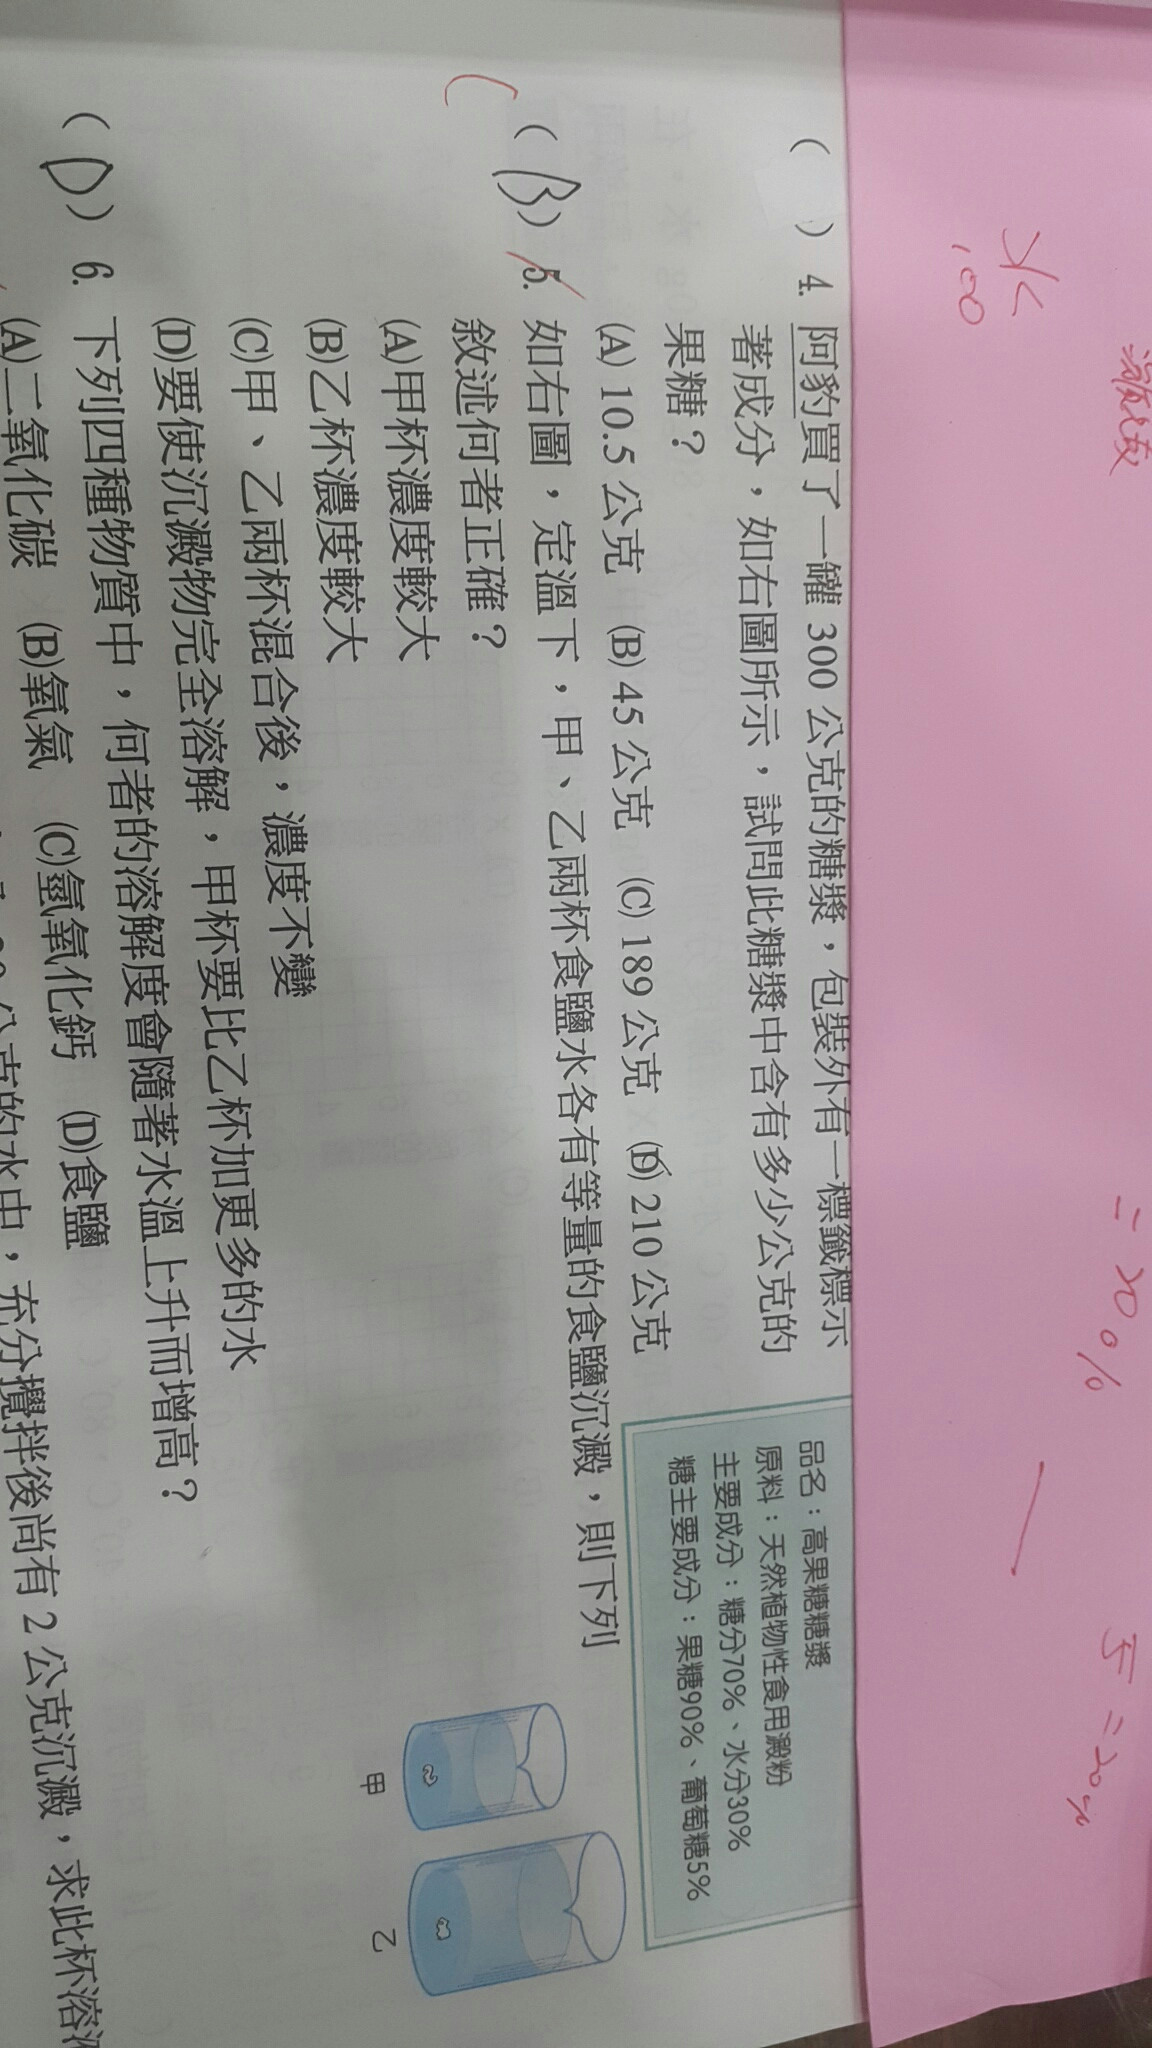 = 20%
5 = 20%
( ) 4. 阿豹買了一罐 300 公克的糖漿，包裝外有一標籤標示
著成分，如右圖所示，試問此糖漿中含有多少公克的
果糖？
(A) 10.5 公克 (B) 45 公克 (C) 189 公克 (D) 210 公克
品名：高果糖糖漿
原料：天然植物性食用澱粉
主要成分：糖分70%、水分30%
糖主要成分：果糖90%、葡萄糖5%
( B ) 5. 如右圖，定溫下，甲、乙兩杯食鹽水各有等量的食鹽沉澱，則下列
敘述何者正確？
(A)甲杯濃度較大
(B)乙杯濃度較大
(C)甲、乙兩杯混合後，濃度不變
(D)要使沉澱物完全溶解，甲杯要比乙杯加更多的水
甲
乙
( D ) 6. 下列四種物質中，何者的溶解度會隨著水溫上升而增高？
(A)二氧化碳 (B)氧氣 (C)氫氧化鈣 (D)食鹽
公克的水中，充分攪拌後尚有 2 公克沉澱，求此杯溶液